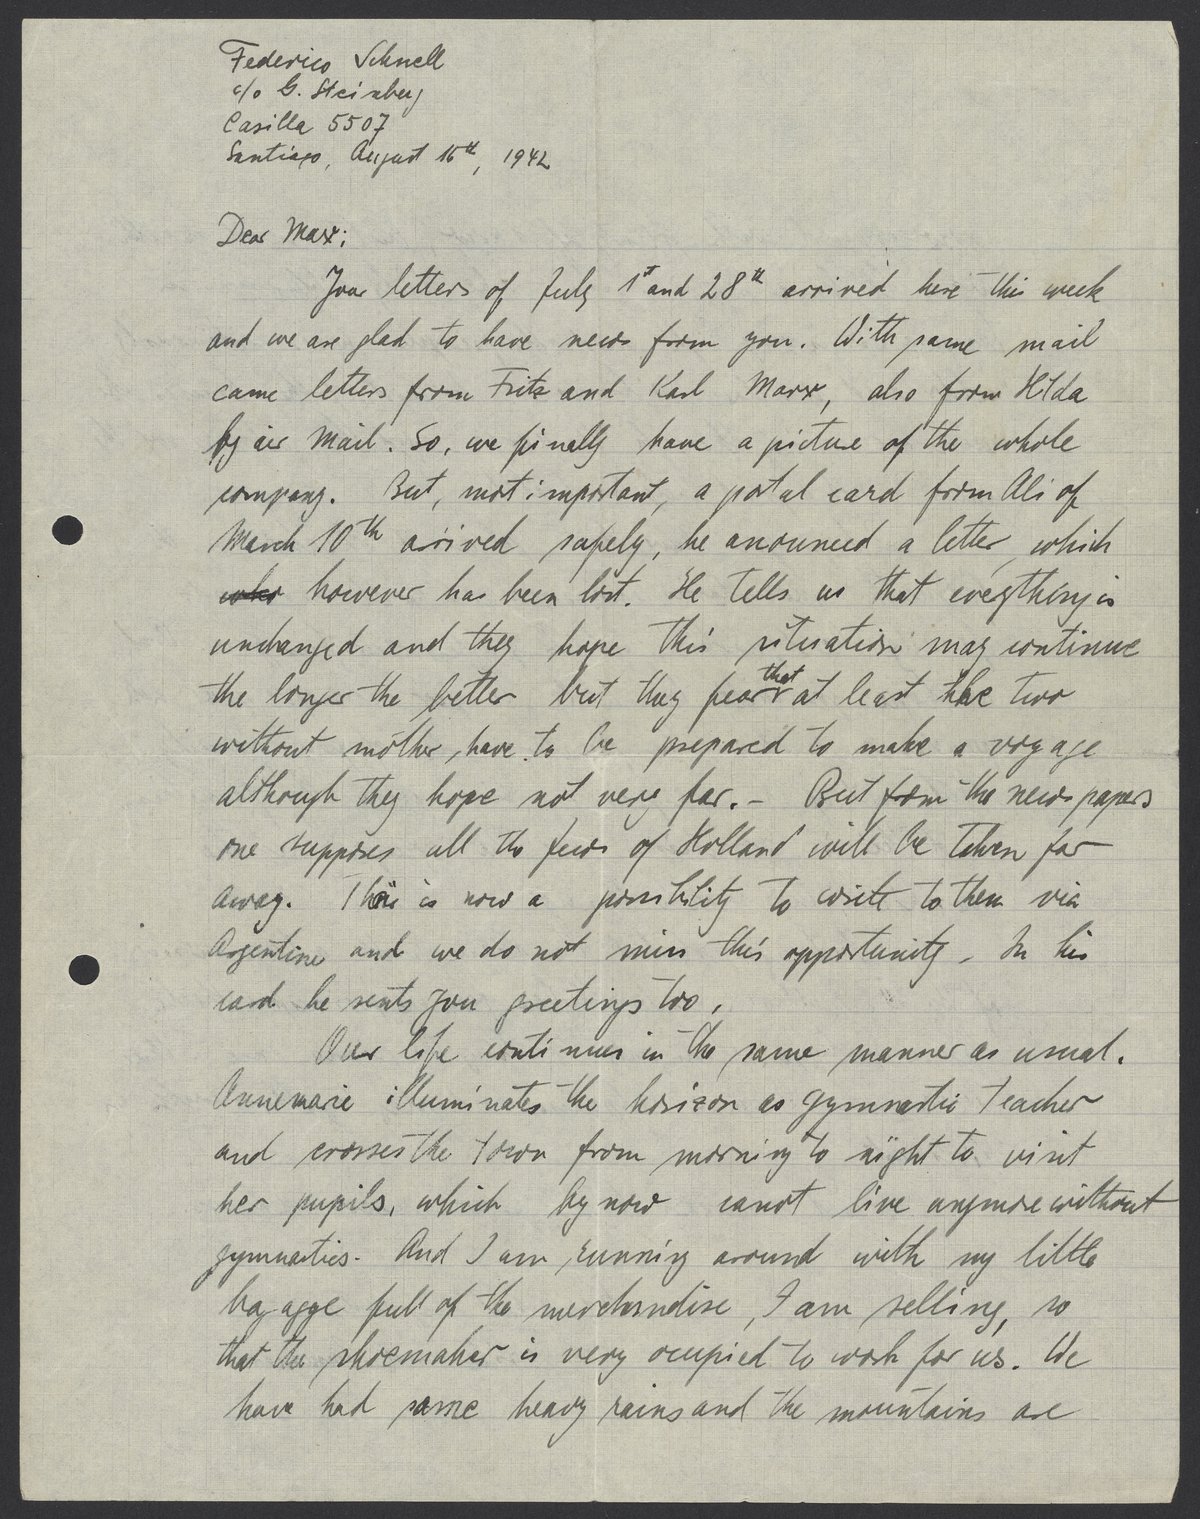 Federico Schnell
c/o G. Steinberg
Casilla 5507
Santiago, August 15th, 1942
Dear Max;
Your letters of July 1st and 28th arrived here this week
and we are glad to have news from you. With same mail
came letters from Fritz and Karl Marx, also from Hilda
by air mail. So, we finally have a picture of the whole
company. But, most important, a postal card from Ali of
March 10th arrived safely, he anounced a letter, which
however has been lost. He tells us that everything is
unchanged and they hope this situation may continue
the longer the better but they fear that at least the two
without mother, have to be prepared to make a voyage
although they hope not very far. - But from the newspapers
one supposes all the jews of Holland will be taken far
away. There is now a possibility to write to them via
Argentine and we do not miss this opportunity. In his
card he sents you greetings too.
Our life continues in the same manner as usual.
Annemarie illuminates the horizon as gymnastic teacher
and crosses the town from morning to night to visit
her pupils, which by now canot live anymore without
gymnastics. And I am running around with my little
bagagge full of the merchandise, I am selling, so
that the shoemaker is very ocupied to work for us. We
have had some heavy rains and the mountains are